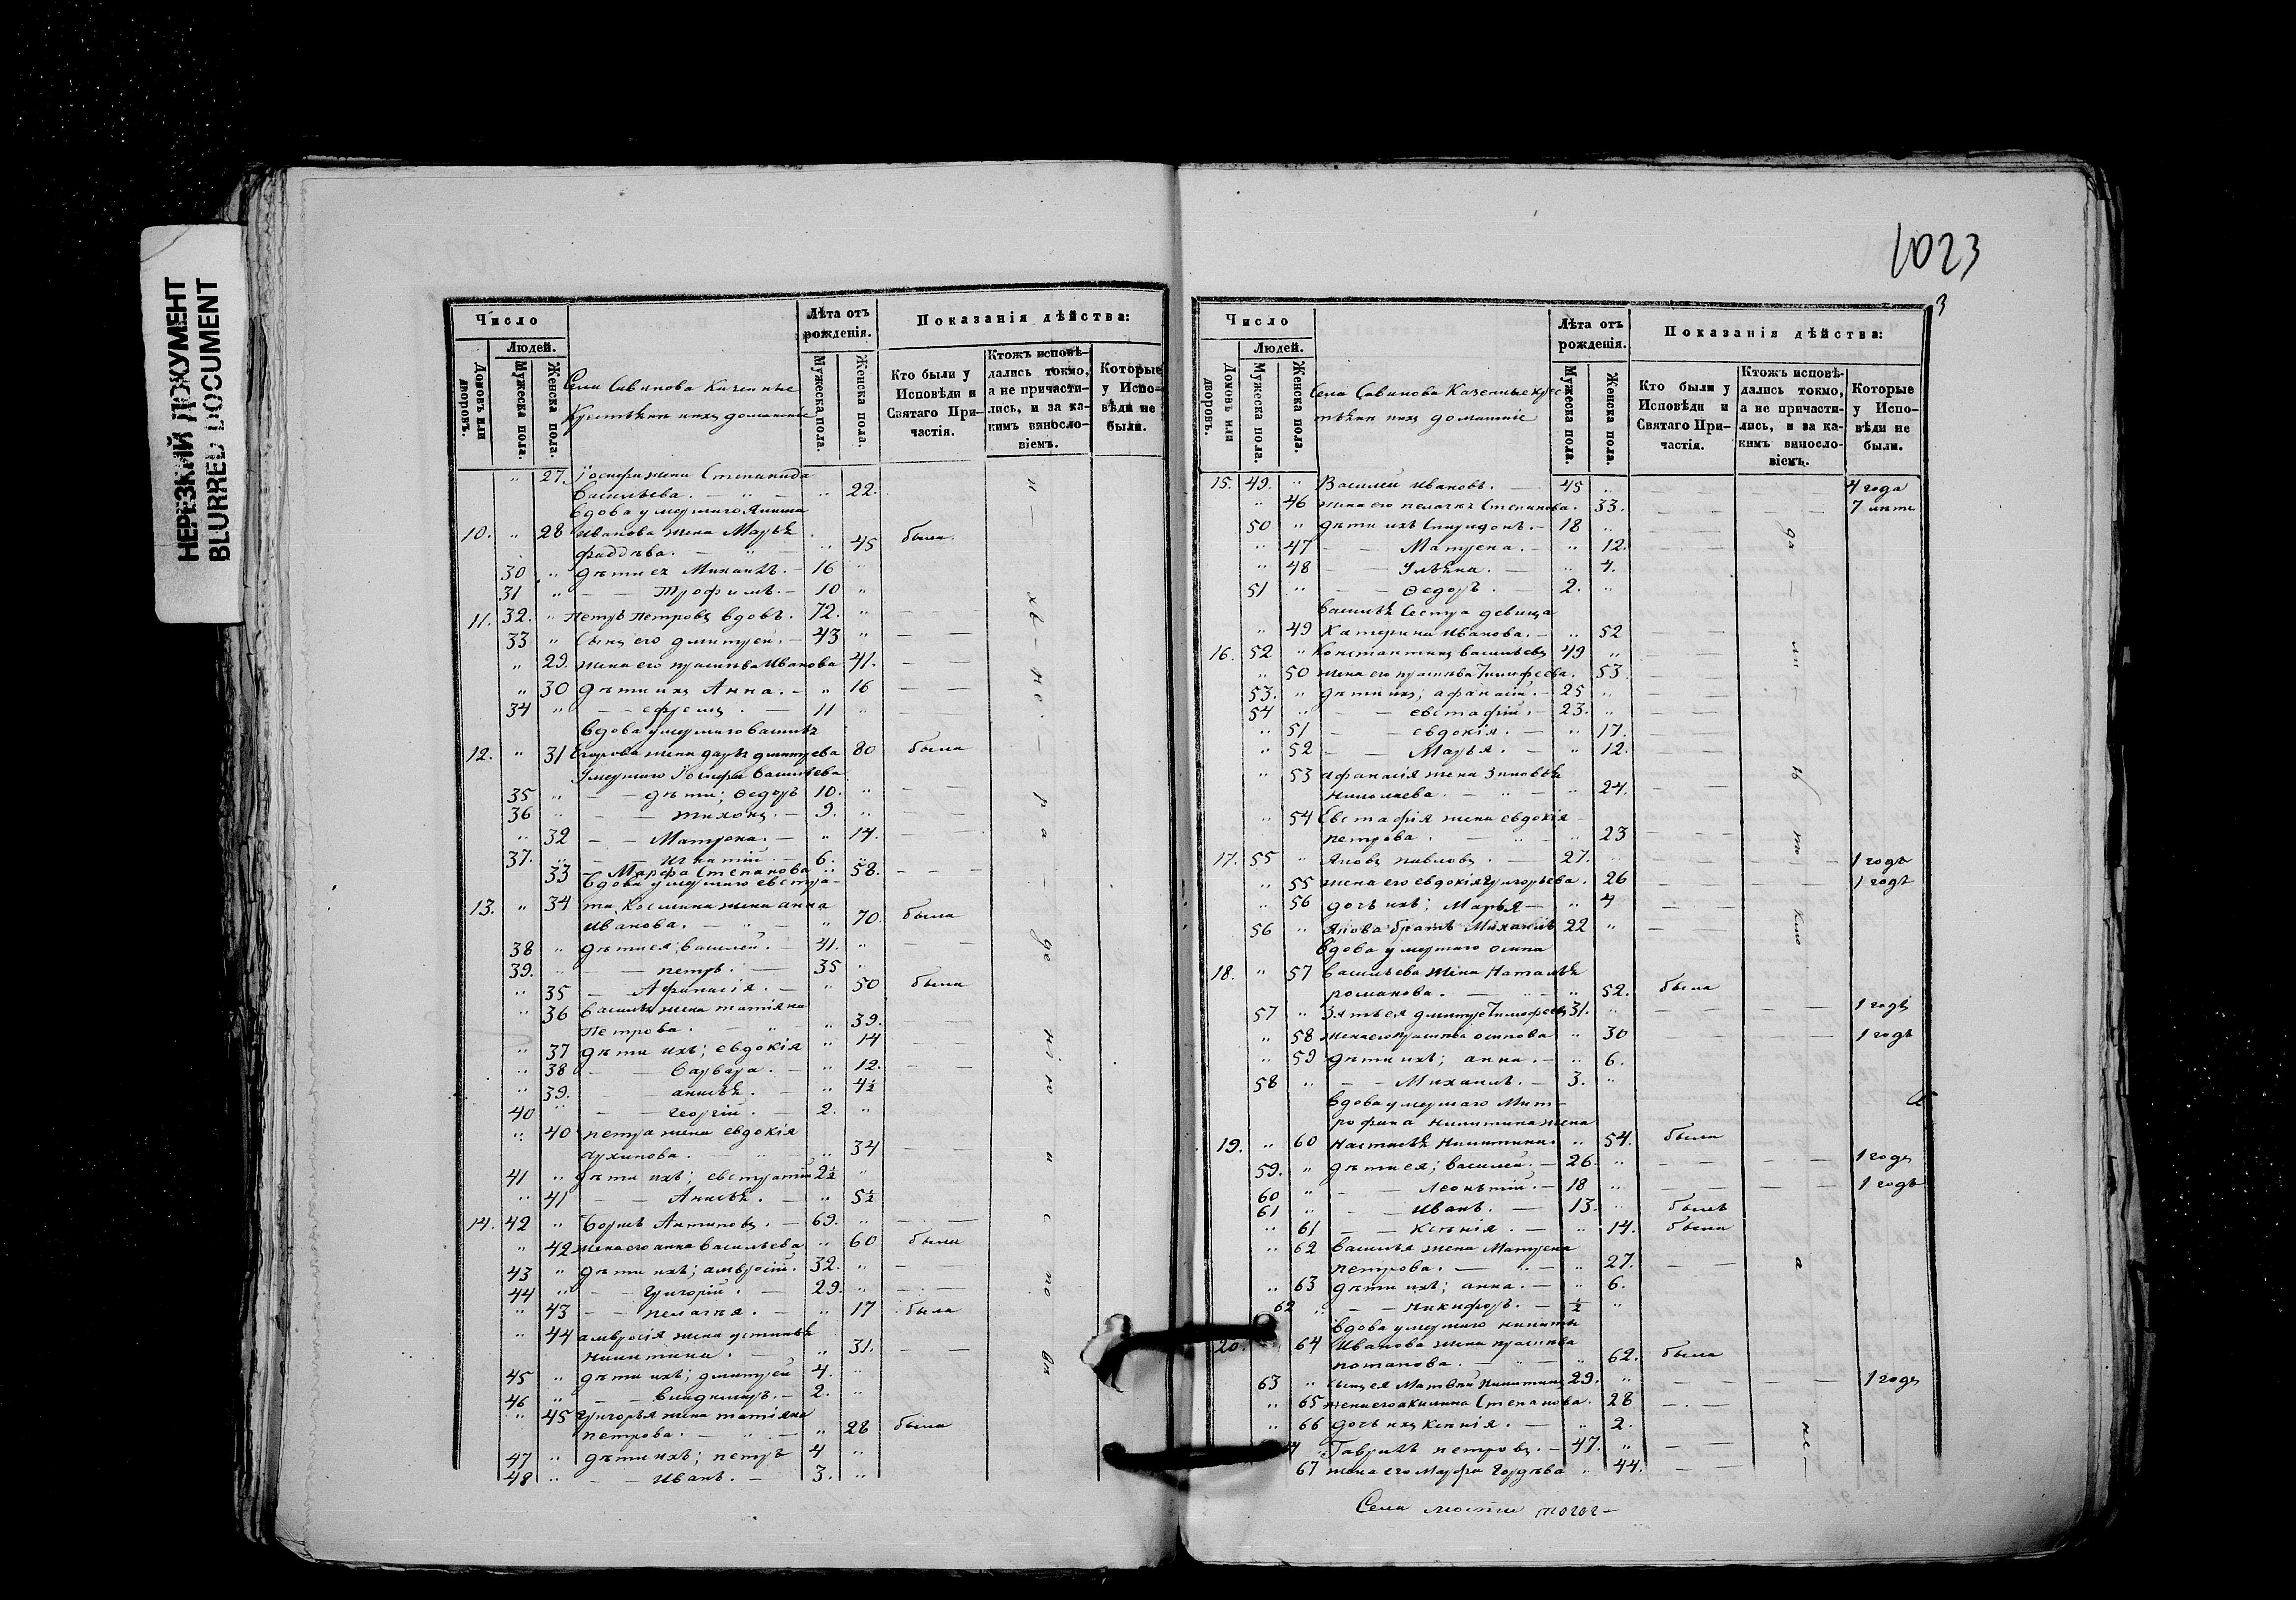 НЕРЕЗКИЙ ДОКУМЕНТ
BLURRED DOCUMENT
Число
Людей.
Домовъ или дворовъ.
Мужеска пола.
Женска пола.
Села Савинова Казенные
Крестьяне и ихъ домашніе
Лѣта отъ рожденія.
Мужеска пола.
Женска пола.
Показанія дѣйства:
Кто были у Исповѣди и Святаго Причастія.
Ктожъ исповѣдались токмо, а не причастились, и за какимъ винословіемъ.
Которые у Исповѣди не были.
" 27. Іосифа жена Степанида
Васильева. — " — " 22.
вдова умершаго
10. " 28 Иванова жена Марья
Фаддѣева. — " — " 45 была
30 " дѣти ея Михаилъ. — 16 "
31 " — — Трофимъ. — 10 "
11. 32. " Петръ Петровъ вдовъ. 72. " — —
33 " Сынъ его Дмитрей. — 43 " — —
" 29. жена его Прасковья Иванова 41. — —
" 30 дѣти ихъ Анна. — " 16 — —
34 " — — ефремъ. — 11 " — —
вдова умершаго Василья
12. " 31 Егорова жена Дарья Дмитрева 80 была
Умершаго Іосифа Васильева
35 " — — дѣти; Ѳедоръ 10. " — —
36 " — — Тихонъ. — 9. " — —
" 32 — — Матрона. — " 14. — —
37. " — — Игнатій. — 6. "
33 — Марфа Степанова " 58. — — —
Вдова умершаго евстра-
13. " 34 та Космина жена анна
Иванова. — " — " 70. была
38 " дѣти ея; Василей. — 41. " — —
39. " — — петръ. — 35 "
" 35 — — Афанасія. — " 50 была
" 36 Василья жена татіяна
Петрова. — " — " 39. — —
" 37 дѣти ихъ; евдокія " 14 — —
" 38 — — Варвара. — " 12. — —
" 39. — — анисья. — " 4½
40 " — — Георгій. — 2. "
" 40 петра жена евдокія
Архипова. — " — " 34 — —
41 " дѣти ихъ; евстратій 2½ "
" 41 — — Анисья. — " 5½
14. 42 " Борисъ Антиповъ. — 69. " — —
" 42 жена его анна Васильева " 60 была
43 " дѣти ихъ; амвросій. 32. " —
44 " — — Григорій. — 29. " — —
" 43 — — пелагея. — " 17 была
" 44 амвросія жена устинья
Никитина. — " 31. — —
45 " дѣти ихъ; дмитрей 4. "
46 " — — владимиръ. — 2. "
" 45 Григорья жена татіяна
петрова. — " — " 28 была
47 " дѣти ихъ; петръ 4 "
48 " — — Иванъ. — 3. "
1023
3
Число
Людей.
Домовъ или дворовъ.
Мужеска пола.
Женска пола.
Села Савинова Казенные крес-
тьяне и ихъ домашніе
Лѣта отъ рожденія.
Мужеска пола.
Женска пола.
Показанія дѣйства:
Кто были у Исповѣди и Святаго Причастія.
Ктожъ исповѣдались токмо, а не причастились, и за какимъ винословіемъ.
Которые у Исповѣди не были.
15. 49. " Василей Ивановъ. — 45 " — — — — 4 года
" 46 жена его пелагея Степанова. 33. — — — — 7 лѣтъ
50 " дѣти ихъ Спиридонъ. — 18 " — —
" 47 — — Матрена. — " 12. — —
" 48 — — Ульяна. — " 4.
51 " — — Ѳедоръ. — 2. "
Василья Сестра девица
" 49 Катерина Иванова. — " 52 — —
16. 52 " Константинъ Васильевъ 49 " — —
" 50 жена его прасковья Тимофеева. 53 — —
53. " дѣти ихъ; афанасій. — 25 " — —
54 " — — евстафій. — 23. " — —
" 51 — — евдокія. — " 17. — —
" 52 — — Марья. — " 12. — —
" 53 афанасія жена Зиновья
Николаева. — " — " 24. — —
" 54 Евстафія жена евдокія
петрова. — " — " 23 — — —
17. 55 " Яковъ павловъ. — 27. " — — — — 1 годъ
" 55 жена его евдокія Григорьева. 26 — — — — 1 годъ
" 56 дочь ихъ; Марья — " 4 — —
56 " Якова братъ Михаилъ 22 " —
вдова умершаго осипа
18. " 57 Васильева жена Наталья
романова. — " — " 52. была
57 " Зять ея дмитре Тимофеевъ 31. " — — — — 1 годъ
" 58 жена его прасковья осипова " 30 — — — — 1 годъ
" 59 дѣти ихъ; анна. — " 6.
58 " — — Михаилъ. — 3. "
вдова умершаго Мит-
рофана Никитина жена
19. " 60 Настасья Никитина. " 54. была
59. " дѣти ея; василей. — 26. " — — — — 1 годъ
60 " — — Леонтій. — 18 " — — — — 1 годъ
61 " — — Иванъ. — 13. " былъ
" 61 — — Ксенія. — " 14. была
" 62 Василья жена Матрена
петрова. — " — " 27. — —
" 63 дѣти ихъ; анна. — " 6.
62 " — — Никифоръ. — ½ "
вдова умершаго никиты
20. 64 Иванова жена прасковья
потапова. — " — " 62. была
63 " сынъ ея Матвѣй Никитинъ 29. " — — — — 1 годъ
" 65 жена его акилина Степанова. 28 — —
" 66 дочь ихъ Ксенія. — " 2.
" Гаврилъ петровъ. — 47. " — —
67 жена его Марфа Гордѣева " 44. — —